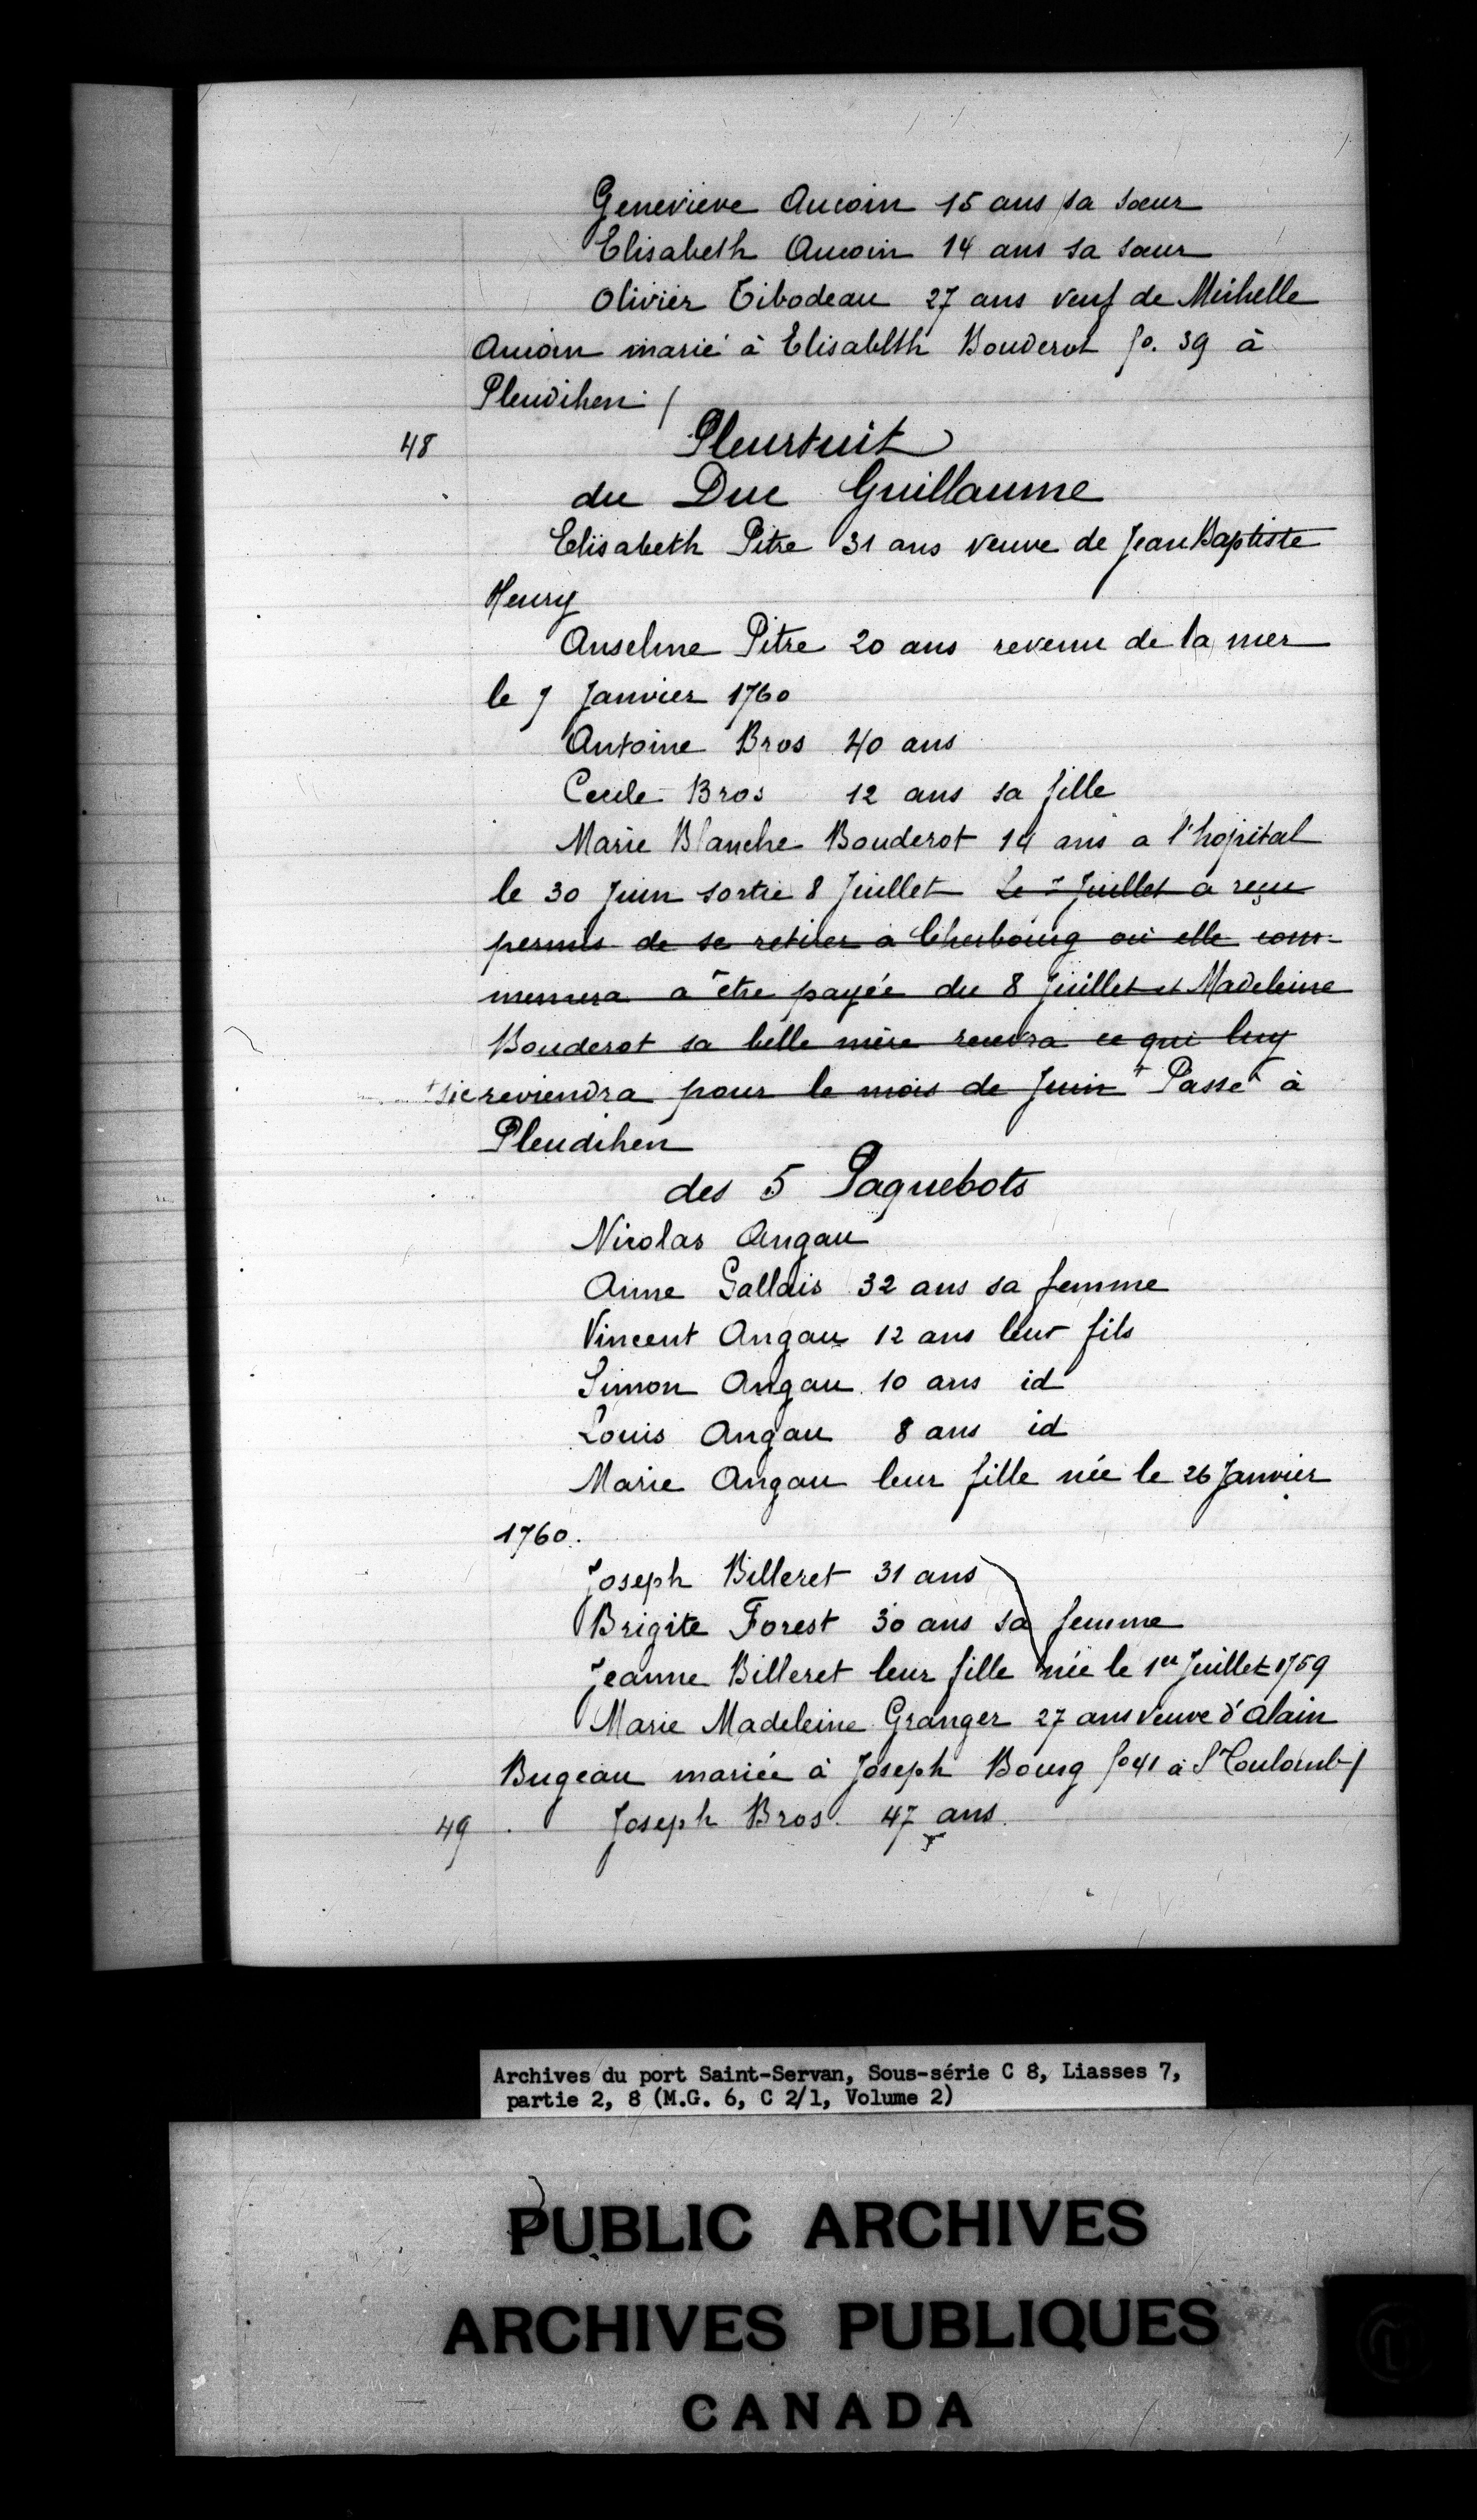 Genevieve Aucoin 15 ans sa sœur
Elisabeth Aucoin 14 ans sa sœur
Olivier Tibodeau 27 ans veuf de Michelle
Aucoin marié à Elisabeth Bouderot fo. 39 à
Pleudihen /
48 Pleurtuit
du Duc Guillaume
Elisabeth Pitre 31 ans veuve de Jean Baptiste
Henry
Anselme Pitre 20 ans revenu de la mer
le 9 Janvier 1760
Antoine Bros 40 ans
Cecile Bros 12 ans sa fille
Marie Blanche Bouderot 14 ans a l'hopital
le 30 Juin sortie 8 Juillet Le Juillet a reçu
permis de se retirer à Cherbourg où elle com-
mencera a être payée du 8 Juillet et Madeleine
Bouderot sa belle mère recevra ce qui luy
+ sic reviendra pour le mois de Juin + Passé à
Pleudihen
des 5 Paquebots
Nicolas Angau
Anne Gallais 32 ans sa femme
Vincent Angau 12 ans leur fils
Simon Angau 10 ans id
Louis Angau 8 ans id
Marie Angau leur fille née le 26 Janvier
1760.
Joseph Billeret 31 ans
Brigite Forest 30 ans sa femme
Jeanne Billeret leur fille née le 1er Juillet 1759
Marie Madeleine Granger 27 ans veuve d'Alain
Bugeau mariée à Joseph Bourg fo 41 à St Coulomb /
49 Joseph Bros. 47 ans.
Archives du port Saint-Servan, Sous-série C 8, Liasses 7,
partie 2, 8 (M.G. 6, C 2/1, Volume 2)
PUBLIC ARCHIVES
ARCHIVES PUBLIQUES
CANADA